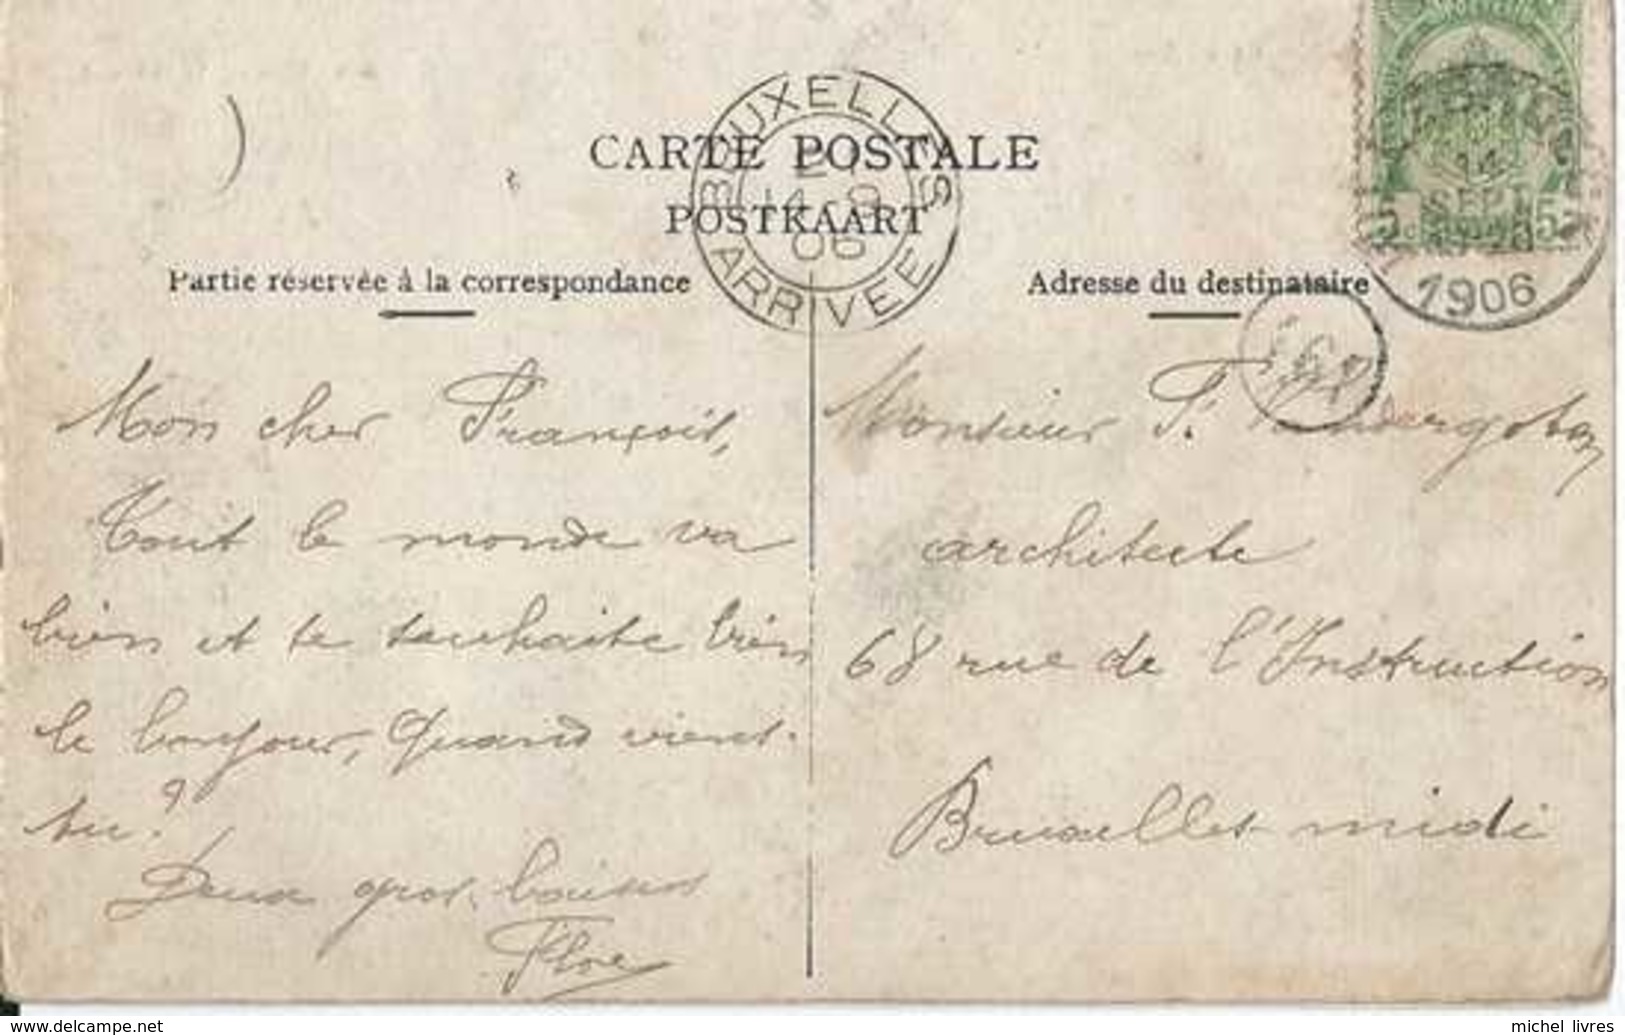 CARTE POSTALE
POSTKAART
BRUXELLES
14-9
06
ARRIVEE
14
SEPT
1906
5
5
Partie réservée à la correspondance
Adresse du destinataire
Mon cher François,
Tout le monde va
bien et te souhaite bien
le bonjour, Quand vient-
tu?
Deux gros baisers
Flore
Monsieur F.
architecte
68 rue de l'Instruction
Bruxelles-midi
michel_livres
www.delcampe.net